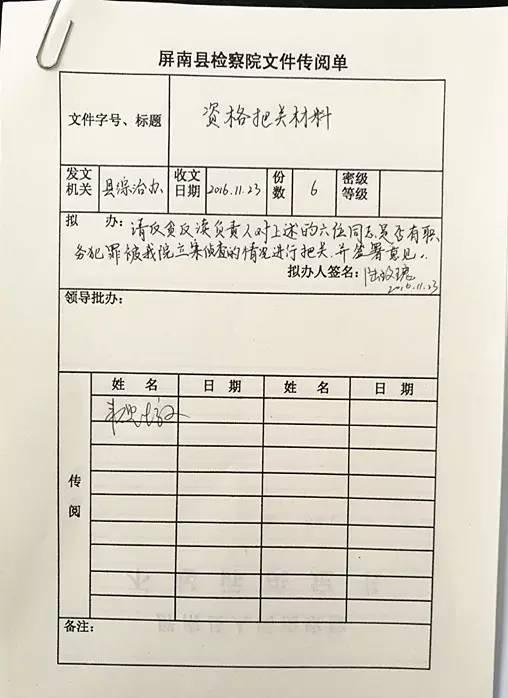 屏南县检察院文件传阅单
文件字号、标题 资格把关材料
发文机关 县综治办 收文日期 2016.11.23 份数 6 密级等级
拟 办：请反贪反渎负责人对上述的六位同志是否有职
务犯罪被我院立案侦查的情况进行把关，并签署意见。
拟办人签名：
2016.11.23
领导批办：
姓 名 日 期 姓 名 日 期
传阅
备注：